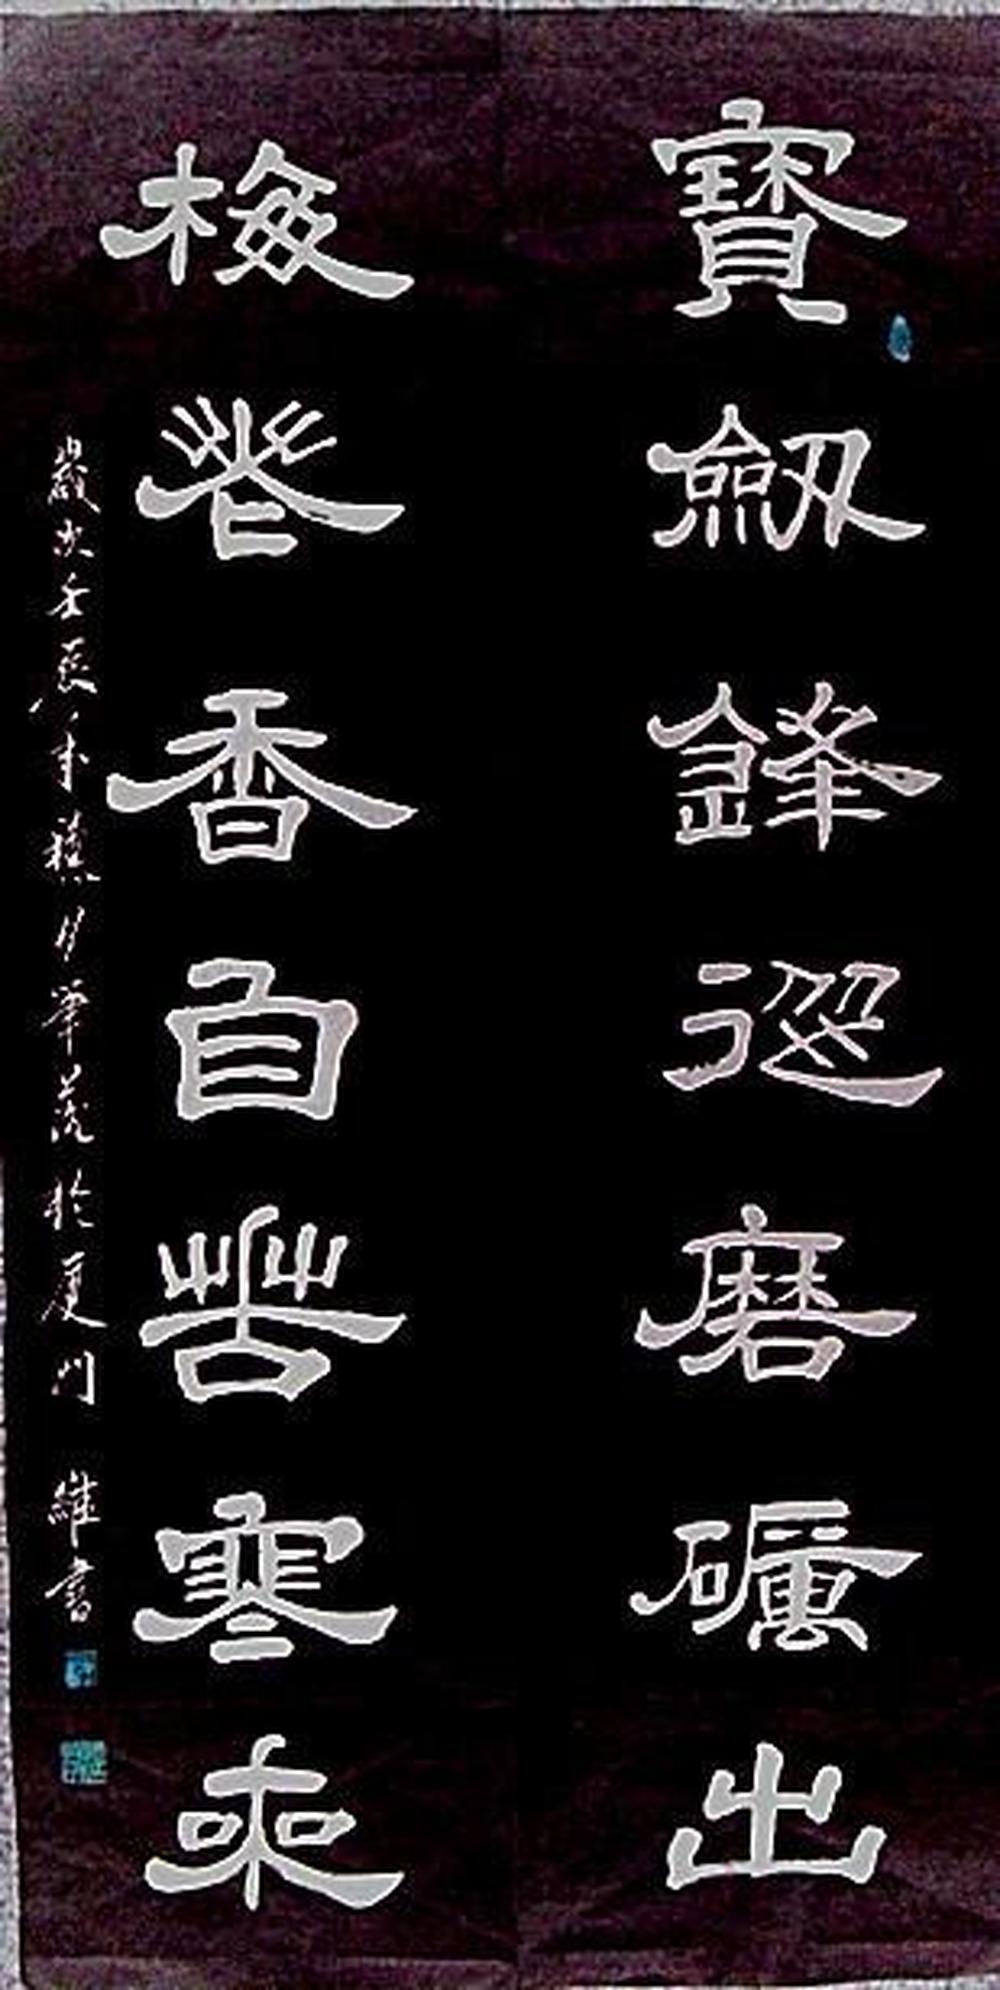 寶劔鋒從磨礪出
梅花香自苦寒來
歲次壬辰年穐月筆荗於廈門 維書